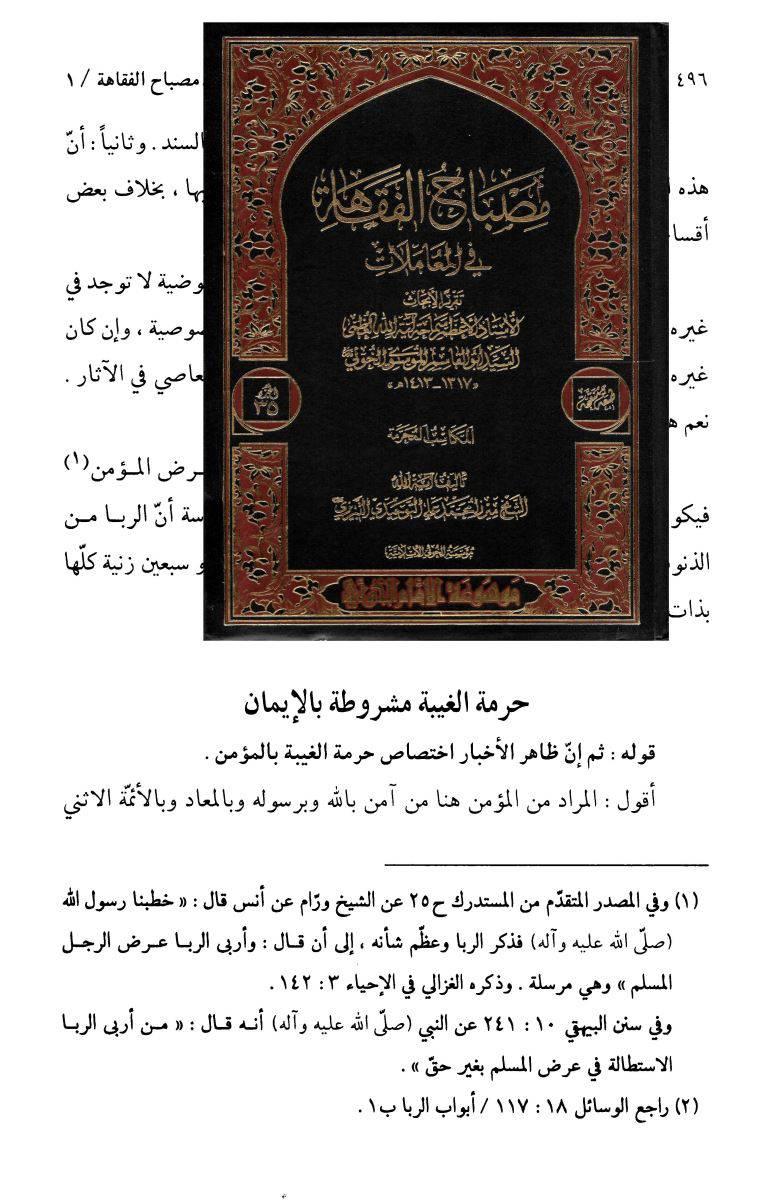 ٤٩٦
مصباح الفقاهة / ١
السند . وثانياً : أنّ
هذه
بها ، بخلاف بعض
أقسا
غيره
وضية لا توجد في
غيره
صوصية ، وإن كان
نعم
عاصي في الآثار .
ـرض المـؤمن(١)
فيكو
سة أنّ الربـا مـن
الذنو
و سبعين زنية كلّها
بذات
مصباح الفقاهة
في المعاملات
تقرير الأبحاث
الأستاذ الأعظم سماحة آية الله العظمى
السيد أبو القاسم الموسوي الخوئي
«١٣١٧ - ١٤١٣هـ»
٣٥
المكاسب المحرمة
تأليف آية الله
الشيخ ميرزا محمد علي التوحيدي التبريزي
مؤسسة الخوئي الإسلامية
موسوعة الإمام الخوئي
حرمة الغيبة مشروطة بالإيمان
قوله : ثم إنّ ظاهر الأخبار اختصاص حرمة الغيبة بالمؤمن .
أقول : المراد من المؤمن هنا من آمن بالله وبرسوله وبالمعاد وبالأئمّة الاثني
(١) وفي المصدر المتقدّم من المستدرك ح٢٥ عن الشيخ ورّام عن أنس قال : « خطبنا رسول الله
(صلّى الله عليه وآله) فذكر الربا وعظّم شأنه ، إلى أن قـال : وأربى الربـا عـرض الرجـل
المسلم » وهي مرسلة . وذكره الغزالي في الإحياء ٣ : ١٤٢ .
وفي سنن البيهقي ١٠ : ٢٤١ عن النبي (صلّى الله عليه وآله) أنـه قـال : « مـن أربى الربـا
الاستطالة في عرض المسلم بغير حقّ » .
(٢) راجع الوسائل ١٨ : ١١٧ / أبواب الربا ب١ .